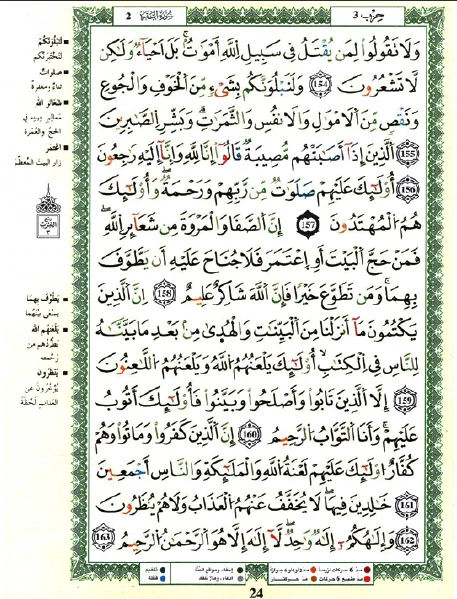 حِزْب 3
سُورَةُ الْبَقَرَة 2
وَلَا تَقُولُوا لِمَن يُقْتَلُ فِي سَبِيلِ اللَّهِ أَمْوَاتٌ بَلْ أَحْيَاءٌ وَلَٰكِن
لَّا تَشْعُرُونَ 154 وَلَنَبْلُوَنَّكُم بِشَيْءٍ مِّنَ الْخَوْفِ وَالْجُوعِ
وَنَقْصٍ مِّنَ الْأَمْوَالِ وَالْأَنفُسِ وَالثَّمَرَاتِ وَبَشِّرِ الصَّابِرِينَ
155 الَّذِينَ إِذَا أَصَابَتْهُم مُّصِيبَةٌ قَالُوا إِنَّا لِلَّهِ وَإِنَّا إِلَيْهِ رَاجِعُونَ
156 أُولَٰئِكَ عَلَيْهِمْ صَلَوَاتٌ مِّن رَّبِّهِمْ وَرَحْمَةٌ وَأُولَٰئِكَ
هُمُ الْمُهْتَدُونَ 157 إِنَّ الصَّفَا وَالْمَرْوَةَ مِن شَعَائِرِ اللَّهِ
فَمَنْ حَجَّ الْبَيْتَ أَوِ اعْتَمَرَ فَلَا جُنَاحَ عَلَيْهِ أَن يَطَّوَّفَ
بِهِمَا وَمَن تَطَوَّعَ خَيْرًا فَإِنَّ اللَّهَ شَاكِرٌ عَلِيمٌ 158 إِنَّ الَّذِينَ
يَكْتُمُونَ مَا أَنزَلْنَا مِنَ الْبَيِّنَاتِ وَالْهُدَىٰ مِن بَعْدِ مَا بَيَّنَّاهُ
لِلنَّاسِ فِي الْكِتَابِ أُولَٰئِكَ يَلْعَنُهُمُ اللَّهُ وَيَلْعَنُهُمُ اللَّاعِنُونَ
159 إِلَّا الَّذِينَ تَابُوا وَأَصْلَحُوا وَبَيَّنُوا فَأُولَٰئِكَ أَتُوبُ
عَلَيْهِمْ وَأَنَا التَّوَّابُ الرَّحِيمُ 160 إِنَّ الَّذِينَ كَفَرُوا وَمَاتُوا وَهُمْ
كُفَّارٌ أُولَٰئِكَ عَلَيْهِمْ لَعْنَةُ اللَّهِ وَالْمَلَائِكَةِ وَالنَّاسِ أَجْمَعِينَ
161 خَالِدِينَ فِيهَا لَا يُخَفَّفُ عَنْهُمُ الْعَذَابُ وَلَا هُمْ يُنظَرُونَ
162 وَإِلَٰهُكُمْ إِلَٰهٌ وَاحِدٌ لَّا إِلَٰهَ إِلَّا هُوَ الرَّحْمَٰنُ الرَّحِيمُ 163
لَنَبْلُوَنَّكُمْ
لنختبرنّكم
صلوات
ثناءٌ ومغفرة
شعائر الله
الحجّ والعمرة
اعتمر
زار البيت المعظّم
يطّوّف بهما
يسعى بينهما
يلعنهم الله
يطردهم من
رحمته
يُنظرون
يُؤخّرون عن
العذاب لحظة
24